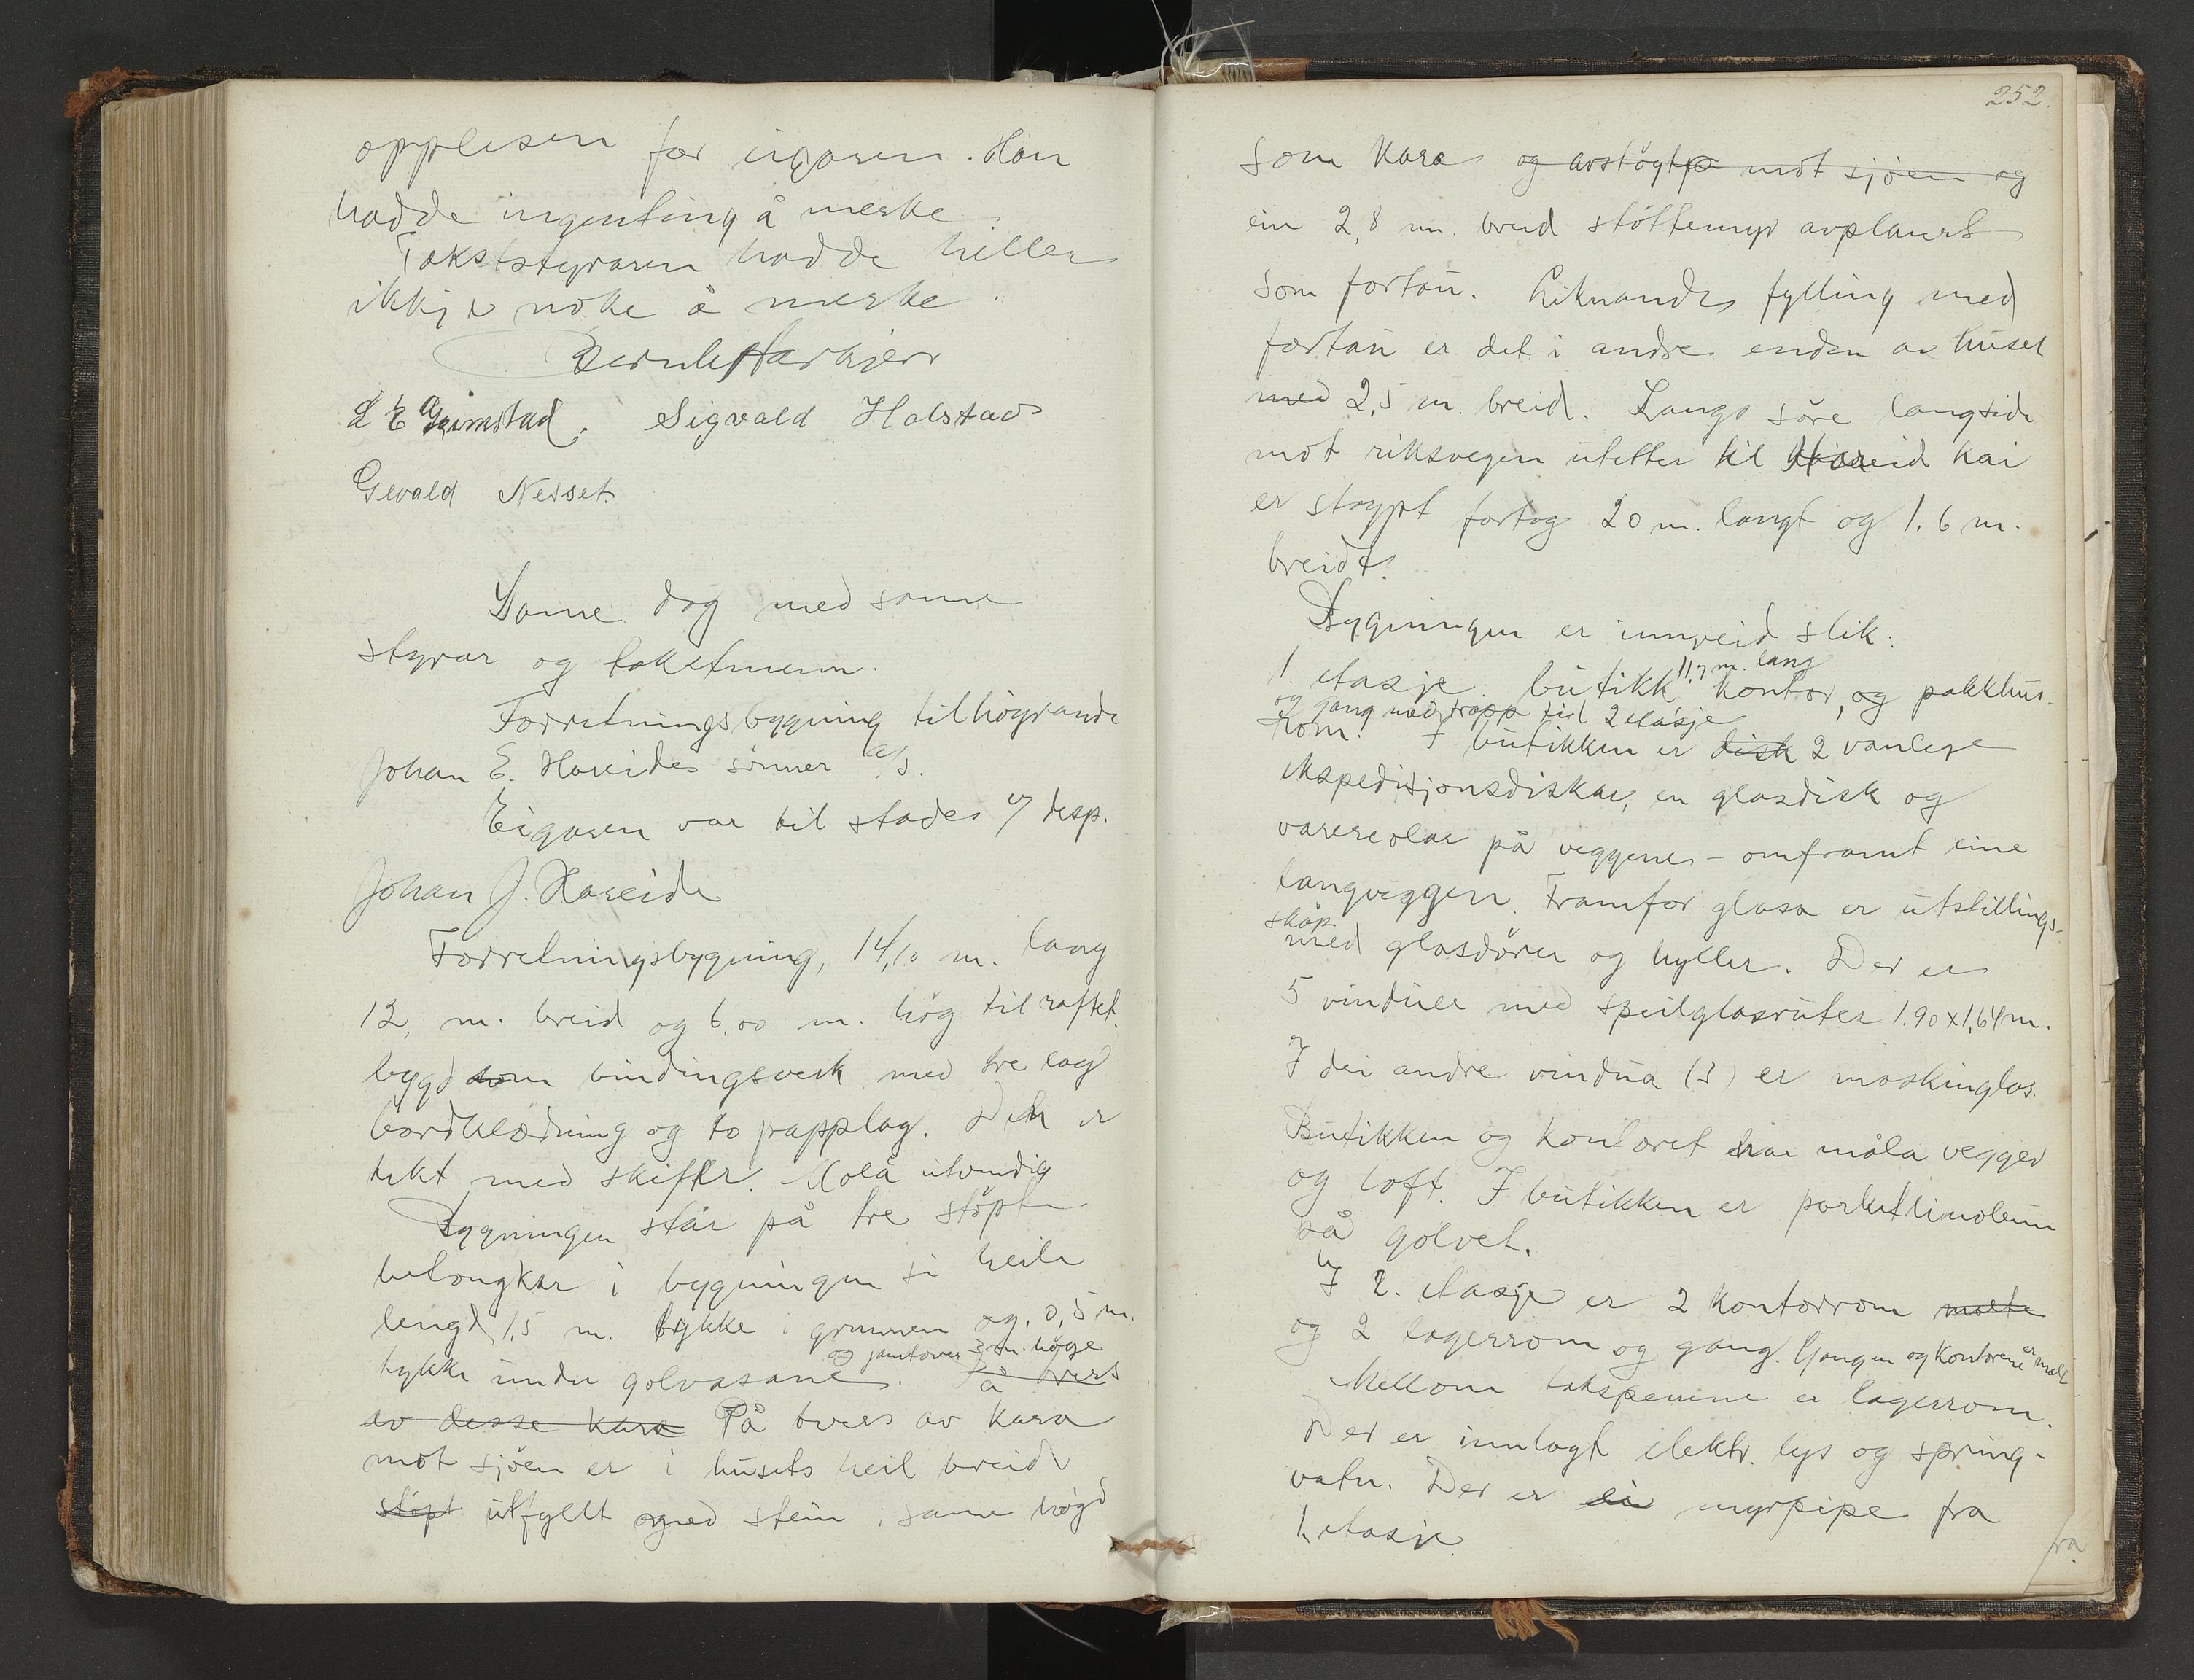 opplesen for eigaren. Han
hadde ingenting å merke
Takststyraren hadde heller
ikkje noke å merke.
L E Grimstad. Sigvald Halstad
Gevald Nesset.
Same dag med same
styrar og takstmenn.
Forretningsbygning tilhøyrande
Johan E. Hareides sønner a/s.
Eigaren var til stades v/ disp.
Johan J. Hareide
Forretningsbygning, 14,10 m. lang
12, m. breid og 6,00 m. høg til raftet.
bygd som bindingsverk med tre lag
bordklædning og to papplag. Den er
tekt med skifer. Måla utvendig
Bygningen står på tre støpte
betongkar i bygningen si heile
lengd 1,5 m. tykke i grunnen og 0,5 m.
og jamtover 3 m. høge
tykke under golvasane. På tvers
av desse kara På tvers av kara
mot sjøen er i husets heil breide
støpt utfyllt med stein i same høgd
252.
som kara og avstøypt mot sjøen og
ein 2,8 m. breid støttemyr avplanert
som fortau. Liknande fylling med
fortau er det i andre enden av huset
med 2,5 m. breid. Langs søre langside
mot riksvegen utetter til Hareid kai
er støypt fortog 20 m. langt og 1.6 m.
breidt.
Bygningen er innreid slik:
11,7 m. lang
1. etasje: butikk kontor, og pakkhus-
og gang med trapp til 2 etasje
rom. I butikken er disk 2 vanlege
ekspedisjonsdiskar, en glasdisk og
varereolar på veggene - omframt eine
langveggen. Framfor glasa er utstillings-
skåp
med glasdører og hyller. Der er
5 vinduer med speilglasruter 1.90 x 1,64 m.
I dei andre vindua (3) er maskinglas.
Butikken og kontoret har måla vegger
og loft. I butikken er parketlinoleum
på golvet.
I 2. etasje er 2 kontorrom
og 2 lagerrom og gang. Gangen og kontorene er malt
Mellom taksperrene er lagerrom.
Der er innlagt elektr. lys og spring-
vatn. Der er ei myrpipe fra
1. etasje
fra